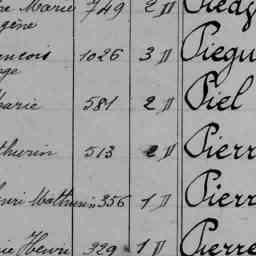 Marie 749 2 "
gène
ancois 1026 3 " Piegu
ge
Marie 581 2 " Piel
thurin 513 2 " Pierr
nri Mathurin 356 1 " Pierr
ie Henri 329 1 " Pierre